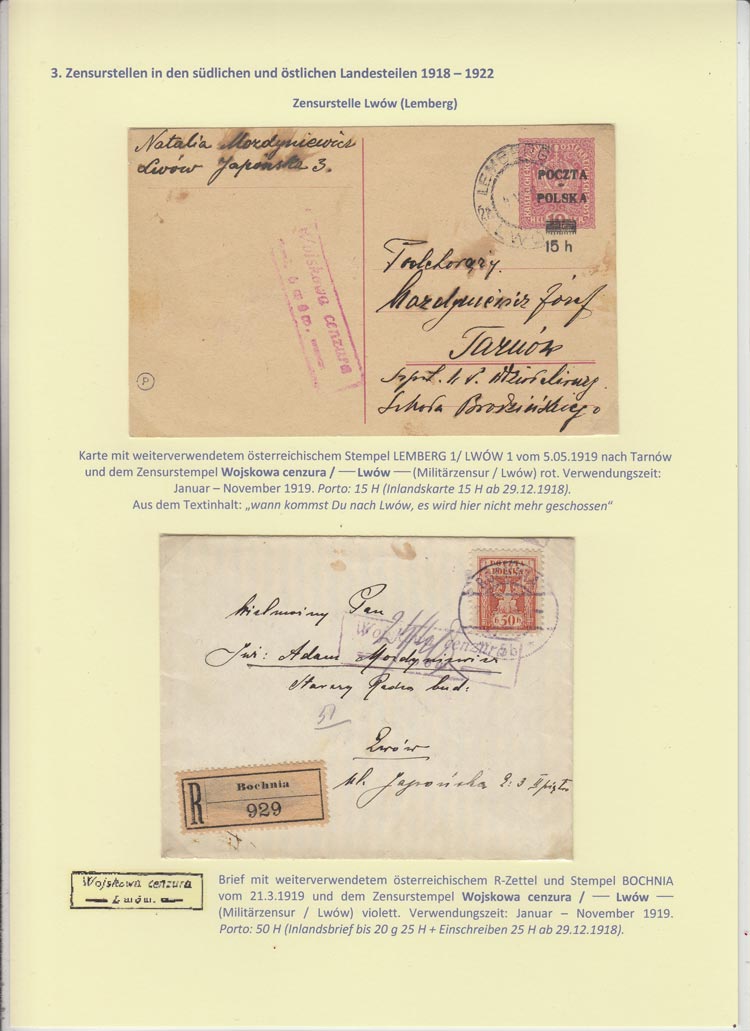 3. Zensurstellen in den südlichen und östlichen Landesteilen 1918 – 1922
Zensurstelle Lwów (Lemberg)
Natalia Mozdyniewicz
Lwów Japońska 3.
LEMBERG
LWÓ
POCZTA
POLSKA
15 h
Wojskowa cenzura
Lwów.
Podchorąży
Mozdyniewicz Józef
Tarnów
Szkoła Brodzińskiego
P
Karte mit weiterverwendetem österreichischem Stempel LEMBERG 1/ LWÓW 1 vom 5.05.1919 nach Tarnów
und dem Zensurstempel Wojskowa cenzura / — Lwów — (Militärzensur / Lwów) rot. Verwendungszeit:
Januar – November 1919. Porto: 15 H (Inlandskarte 15 H ab 29.12.1918).
Aus dem Textinhalt: „wann kommst Du nach Lwów, es wird hier nicht mehr geschossen“
POCZTA
POLSKA
50
Wielmożny Pan
Wojskowa cenzura
Inż: Adam Mozdyniewicz
Starszy Radca bud:
51
Lwów
ul. Japońska l: 3 II piętro
R
Bochnia
929
Wojskowa cenzura
Lwów.
Brief mit weiterverwendetem österreichischem R-Zettel und Stempel BOCHNIA
vom 21.3.1919 und dem Zensurstempel Wojskowa cenzura / — Lwów —
(Militärzensur / Lwów) violett. Verwendungszeit: Januar – November 1919.
Porto: 50 H (Inlandsbrief bis 20 g 25 H + Einschreiben 25 H ab 29.12.1918).